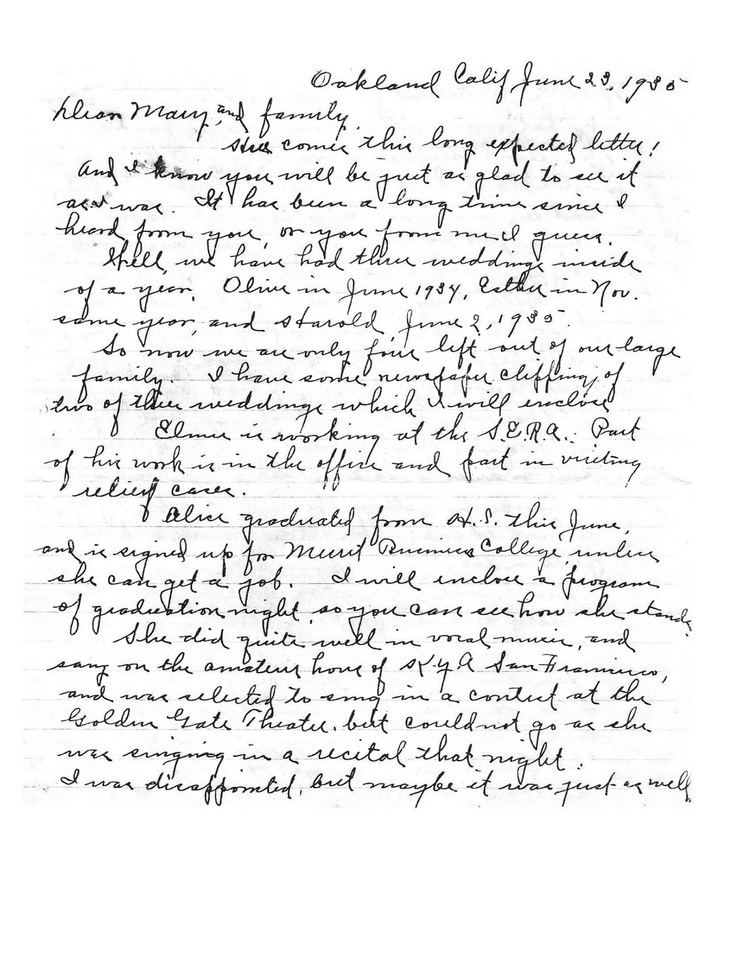 Oakland Calif June 23, 1935
Dear Mary, and family,
Here comes this long expected letter!
And I know you will be just as glad to see it
as I was. It has been a long time since I
heard from you, or you from me I guess.
Well, we have had three weddings inside
of a year, Olive in June 1934, Esther in Nov.
same year, and Harold, June 2, 1935.
So now we are only four left out of our large
family. I have some newspaper clippings of
two of the weddings which I will enclose
Elmer is working at the S.E.R.A. Part
of his work is in the office and part in visiting
relief cases.
Alice graduated from H.S. this June,
and is signed up for Merrit Business College, unless
she can get a job. I will enclose a program
of graduation night, so you can see how she stands
She did quite well in vocal music, and
sang on the amateur hour of K.Y.A San Francisco,
and was selected to sing in a contest at the
Golden Gate Theatre, but could not go as she
was singing in a recital that night.
I was disappointed, but maybe it was just as well